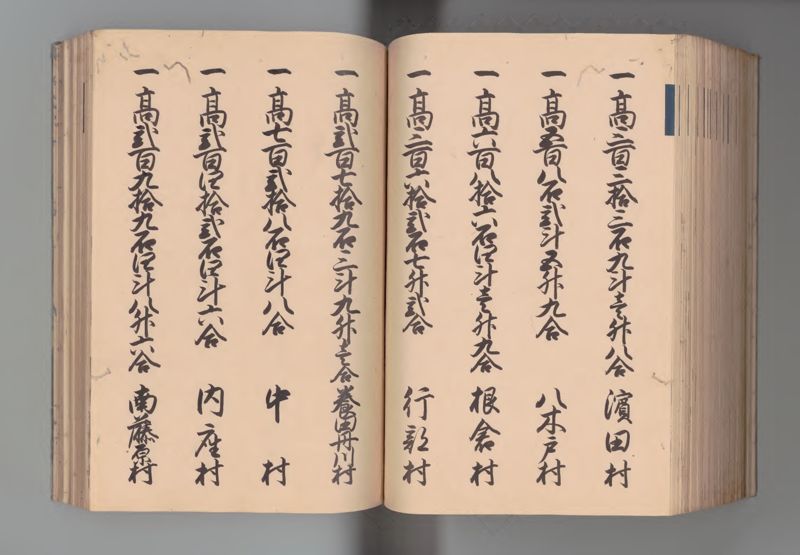 一 高三百三拾三石九斗壱升八合 濱田村
一 高五百八石弐斗五升九合 八木戸村
一 高六百八拾六石四斗壱升九合 根倉村
一 高三百六拾弐石七升弐合 行部村
一 高弐百七拾九石三斗九升壱合 養田丹川村
一 高七百弐拾八石四斗八合 中村
一 高弐百四拾弐石四斗六合 内座村
一 高弐百九拾九石四斗八升六合 南藤原村